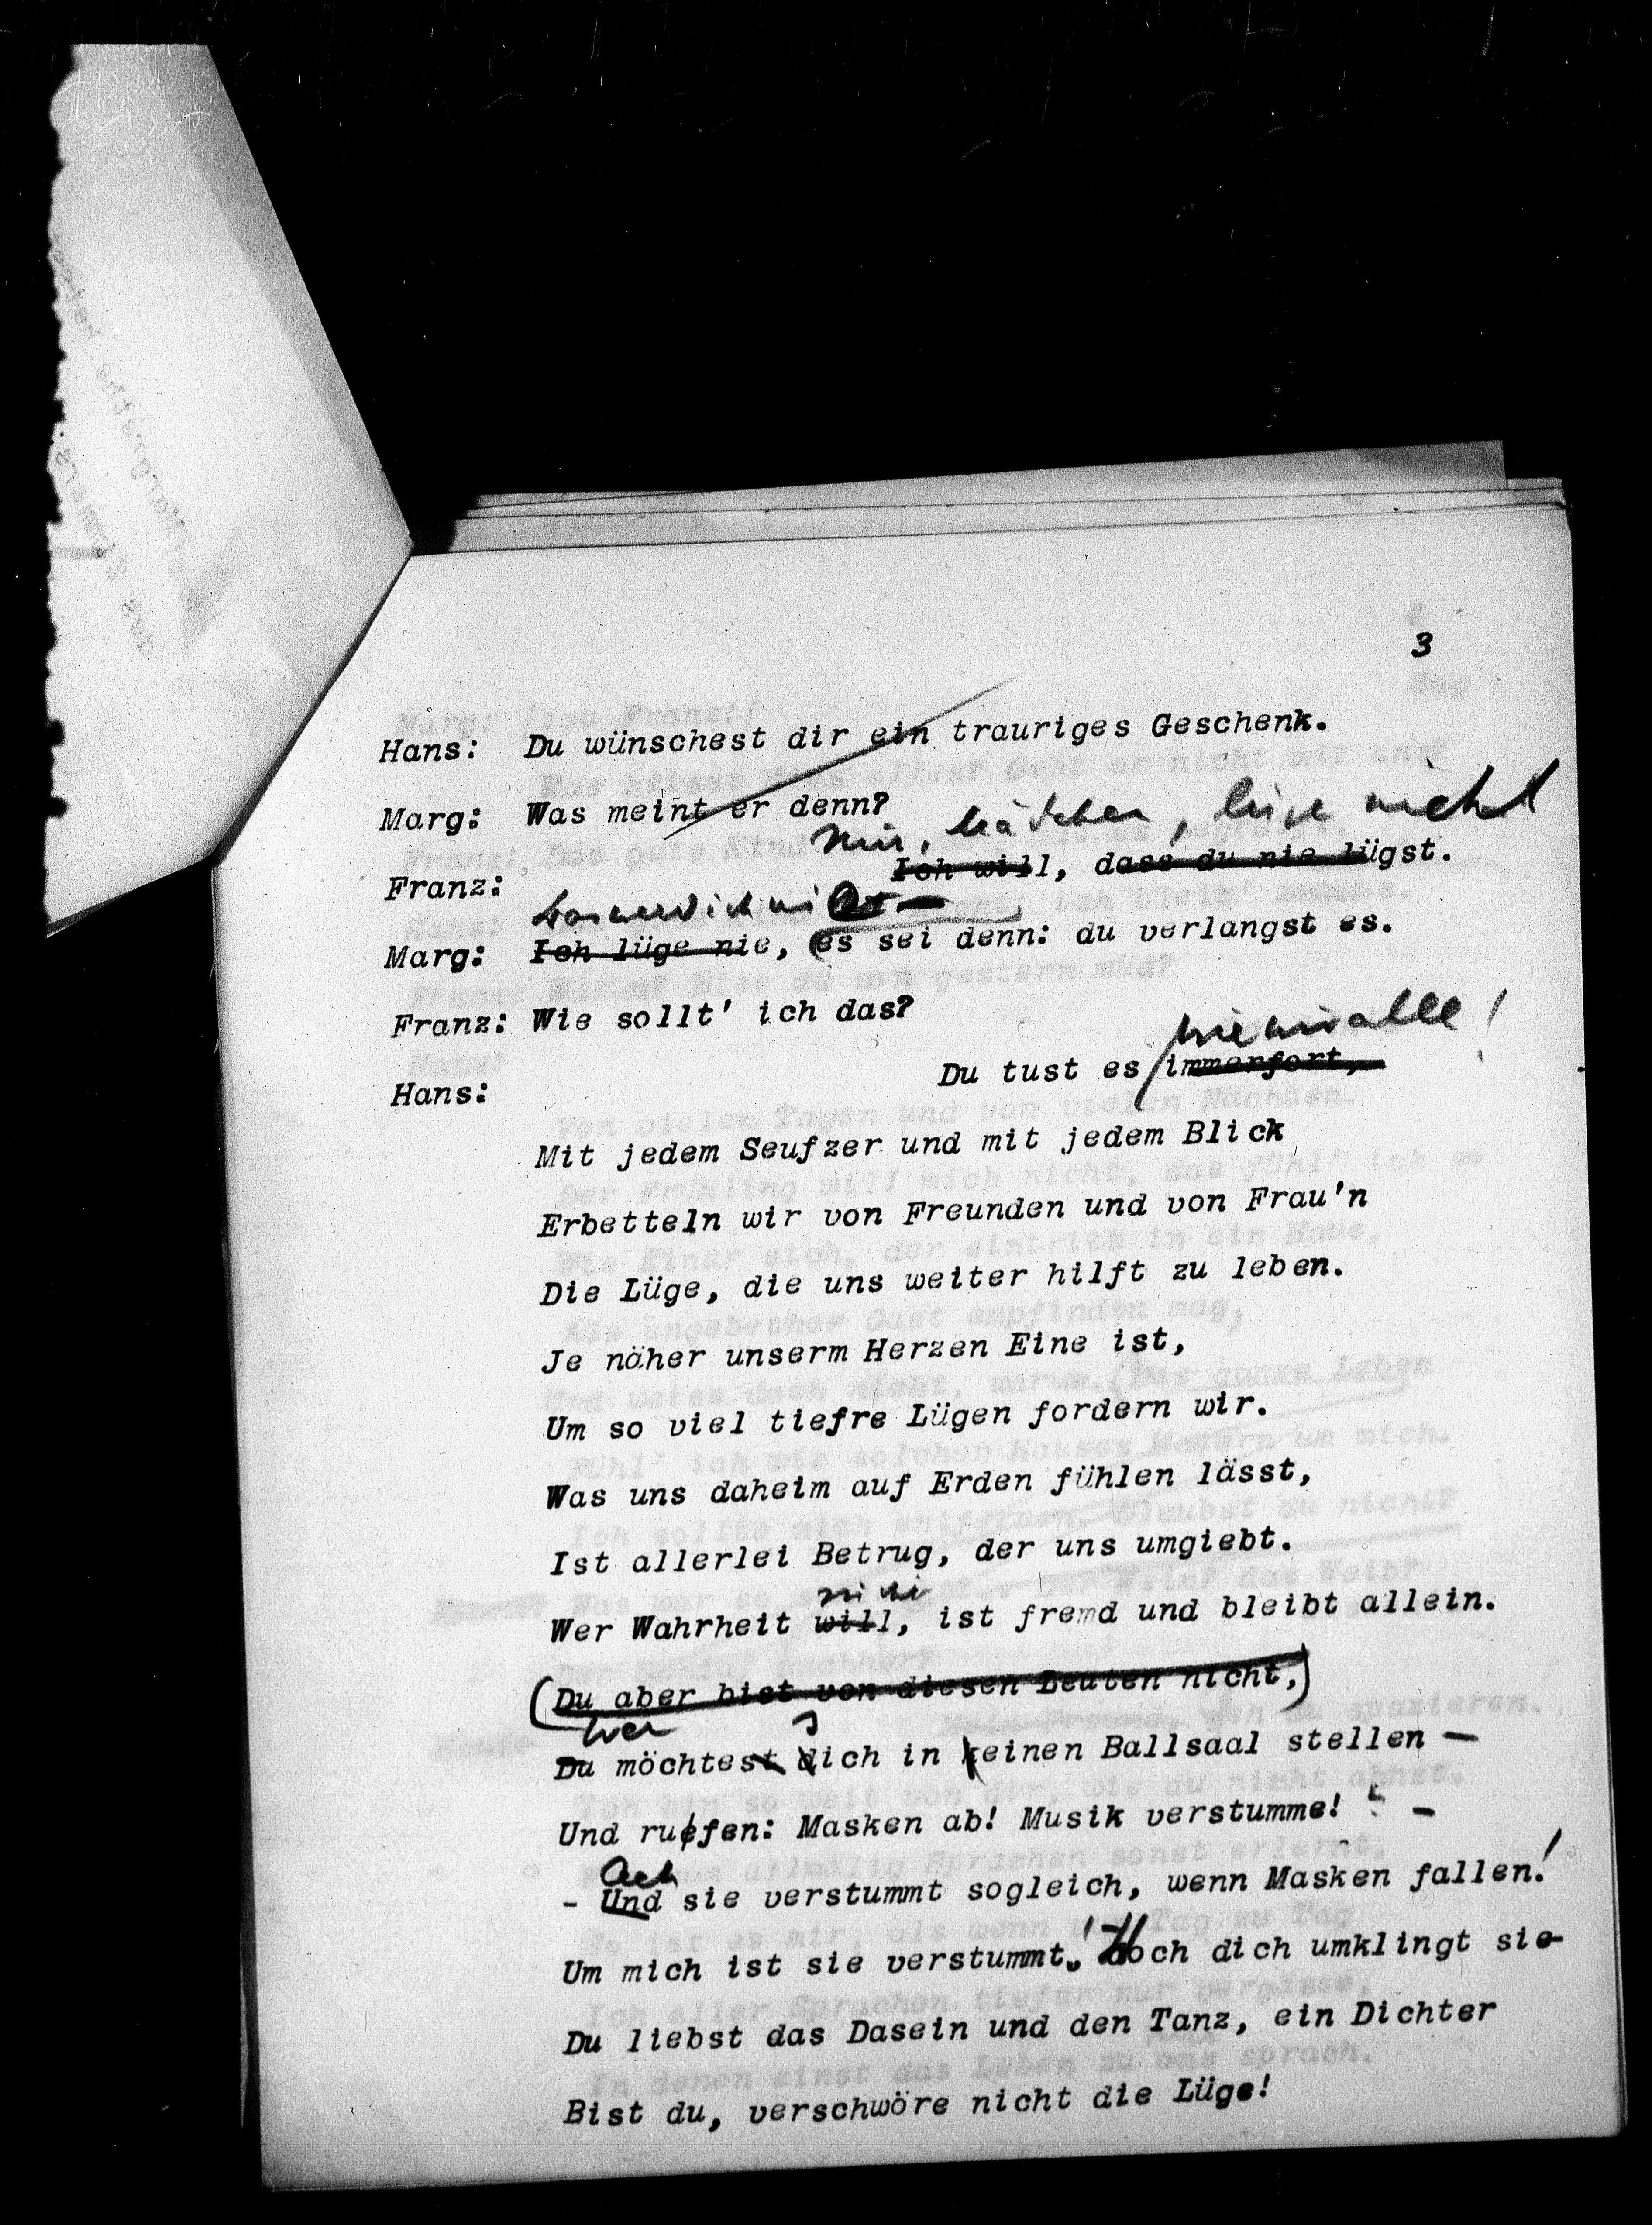 3
Hans: Du wünschest dir ein trauriges Geschenk.
Marg: Was meint er denn?
Mir, Mädchen, lüge nicht
Franz: Ich will, dass du nie lügst.
Marg: Ich lüge nie, es sei denn: du verlangst es.
Franz: Wie sollt' ich das?
wie wir alle!
Hans: Du tust es immerfort,
Mit jedem Seufzer und mit jedem Blick
Erbetteln wir von Freunden und von Frau'n
Die Lüge, die uns weiter hilft zu leben.
Je näher unserm Herzen Eine ist,
Um so viel tiefre Lügen fordern wir.
Was uns daheim auf Erden fühlen lässt,
Ist allerlei Betrug, der uns umgiebt.
Wer Wahrheit will, ist fremd und bleibt allein.
(Du aber bist von diesen Leuten nicht,)
Wer
Du möchtest dich in keinen Ballsaal stellen —
Und ruefen: Masken ab! Musik verstumme! —
Ach
- Und sie verstummt sogleich, wenn Masken fallen!
Um mich ist sie verstummt! doch dich umklingt sie
Du liebst das Dasein und den Tanz, ein Dichter
Bist du, verschwöre nicht die Lüge!